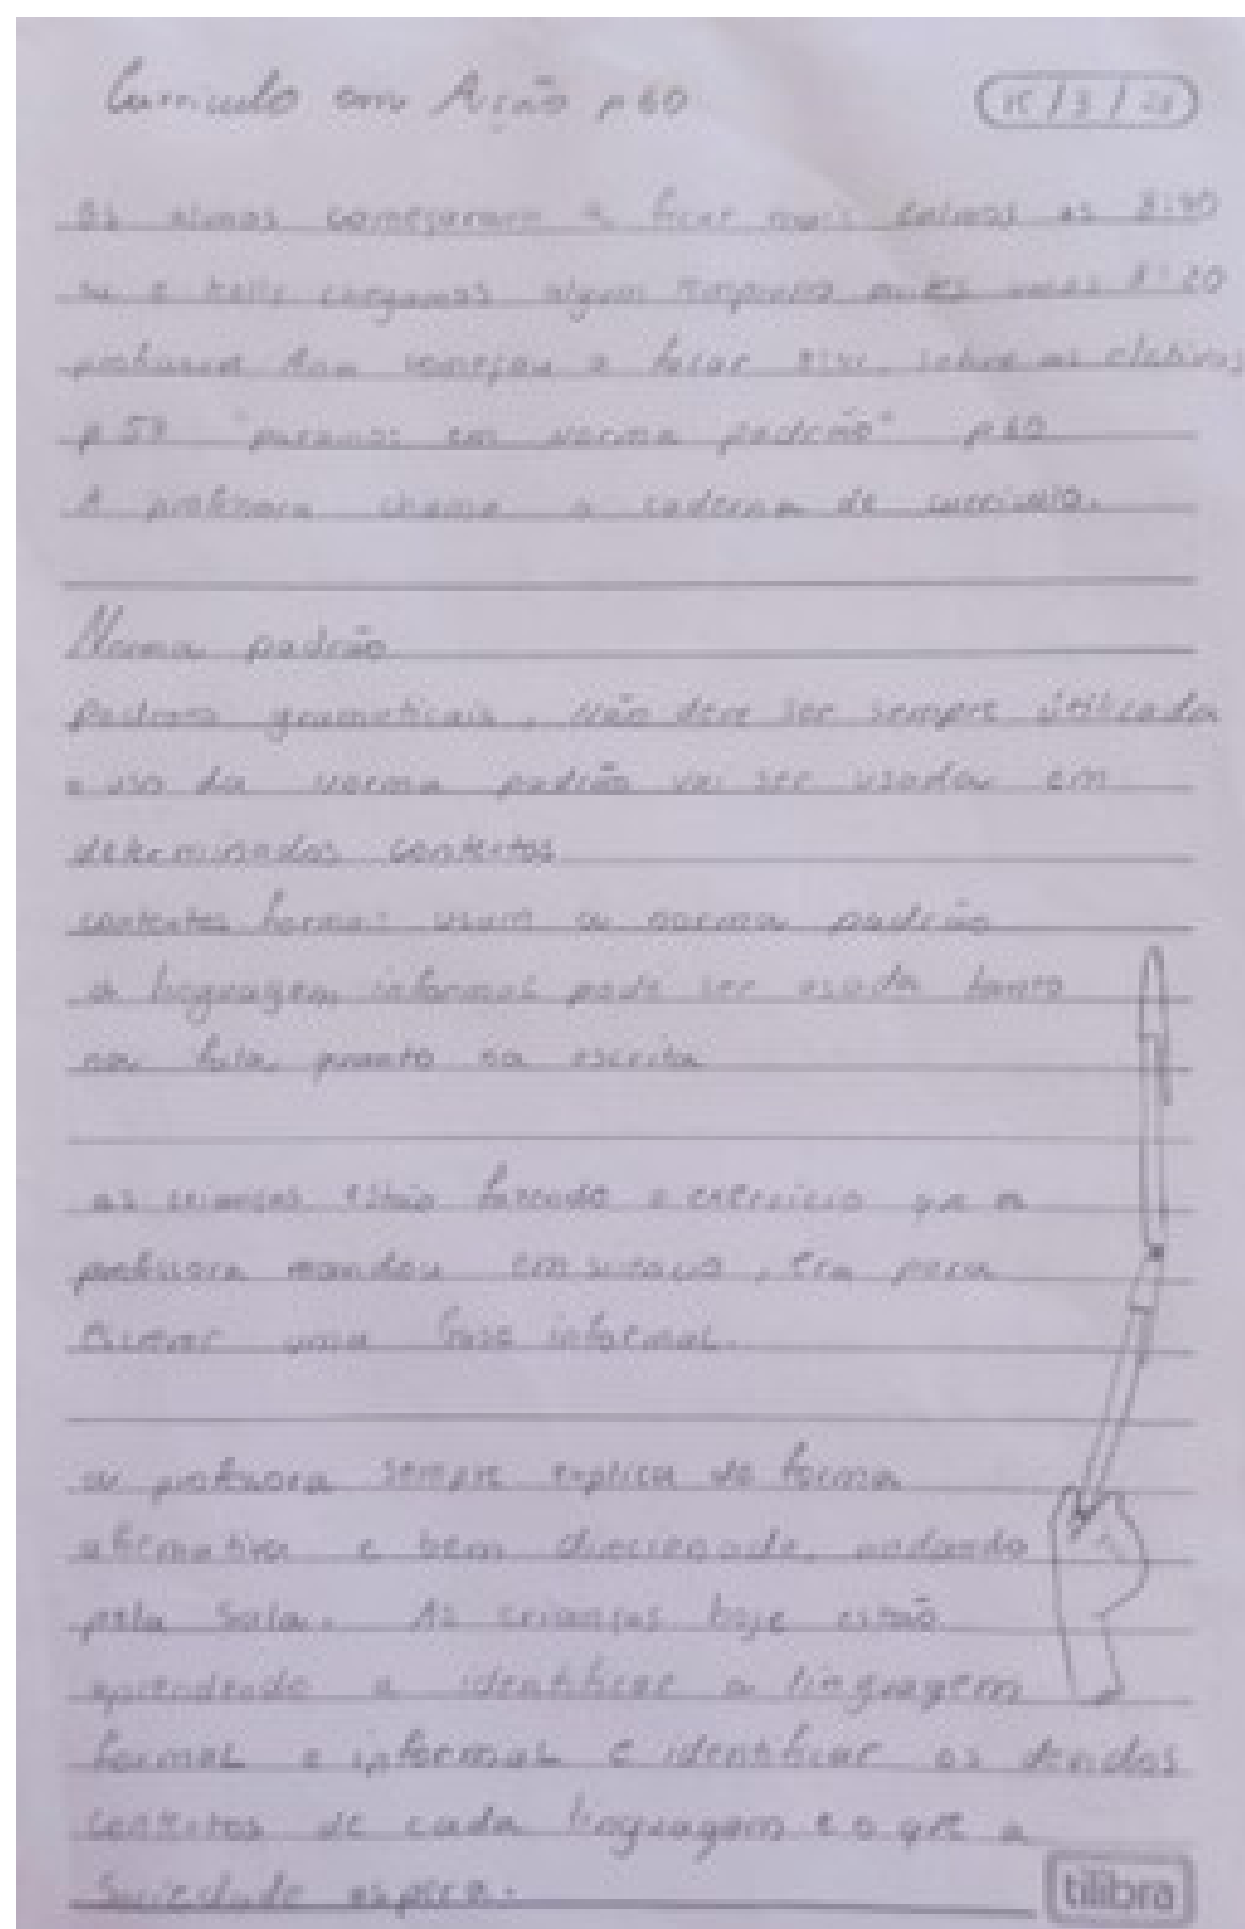 Curriculo em Ação p 60
Os alunos começaram a ficar mais calmos as 8:40
eu e Kelly chegamos algum tempinho antes umas 8:20
professora começou a falar sobre as eletivas
p 59 "paramos em norma padrão" p 60
A professora chama o caderno de curriculo.
Norma padrão
Padrões gramaticais, Não deve ser sempre útilizada
o uso da norma padrão vai ser usada em
determinados contextos
contextos formais usam a norma padrão
a linguagem informal pode ser usada tanto
na fala, quanto na escrita
as crianças estão fazendo o exercicio que a
professora mandou em silêncio, era para
escrever uma frase informal.
a professora sempre explica de forma
afirmativa e bem direcionada, andando
pela sala. As crianças hoje estão
aprendendo a identificar a linguagem
formal e informal e identificar os devidos
contextos de cada linguagem e o que a
Sociedade espera.
tilibra